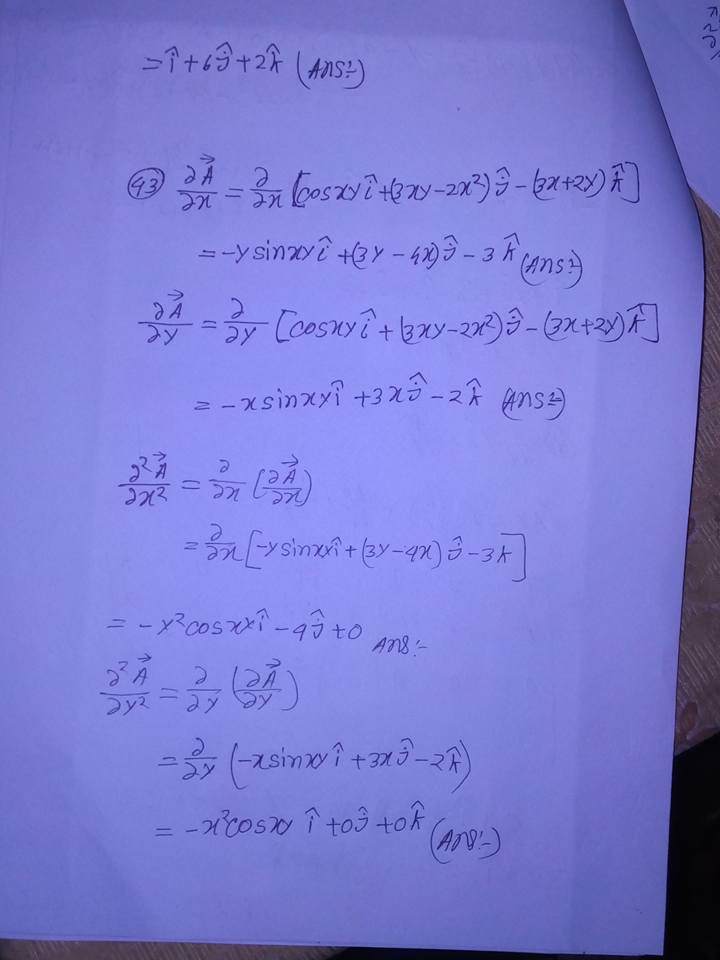 = î + 6ĵ + 2k̂ (Ans:-)
(43) ∂A⃗/∂x = ∂/∂x [cosxy î + (3xy - 2x²) ĵ - (3x + 2y) k̂]
= -y sinxy î + (3y - 4x) ĵ - 3 k̂ (Ans:-)
∂A⃗/∂y = ∂/∂y [cosxy î + (3xy - 2x²) ĵ - (3x + 2y) k̂]
= -x sinxy î + 3x ĵ - 2 k̂ (Ans:-)
∂²A⃗/∂x² = ∂/∂x (∂A⃗/∂x)
= ∂/∂x [-y sinxy î + (3y - 4x) ĵ - 3k̂]
= -y² cosxy î - 4 ĵ + 0 Ans:-
∂²A⃗/∂y² = ∂/∂y (∂A⃗/∂y)
= ∂/∂y (-x sinxy î + 3x ĵ - 2 k̂)
= -x² cosxy î + 0 ĵ + 0 k̂ (Ans:-)